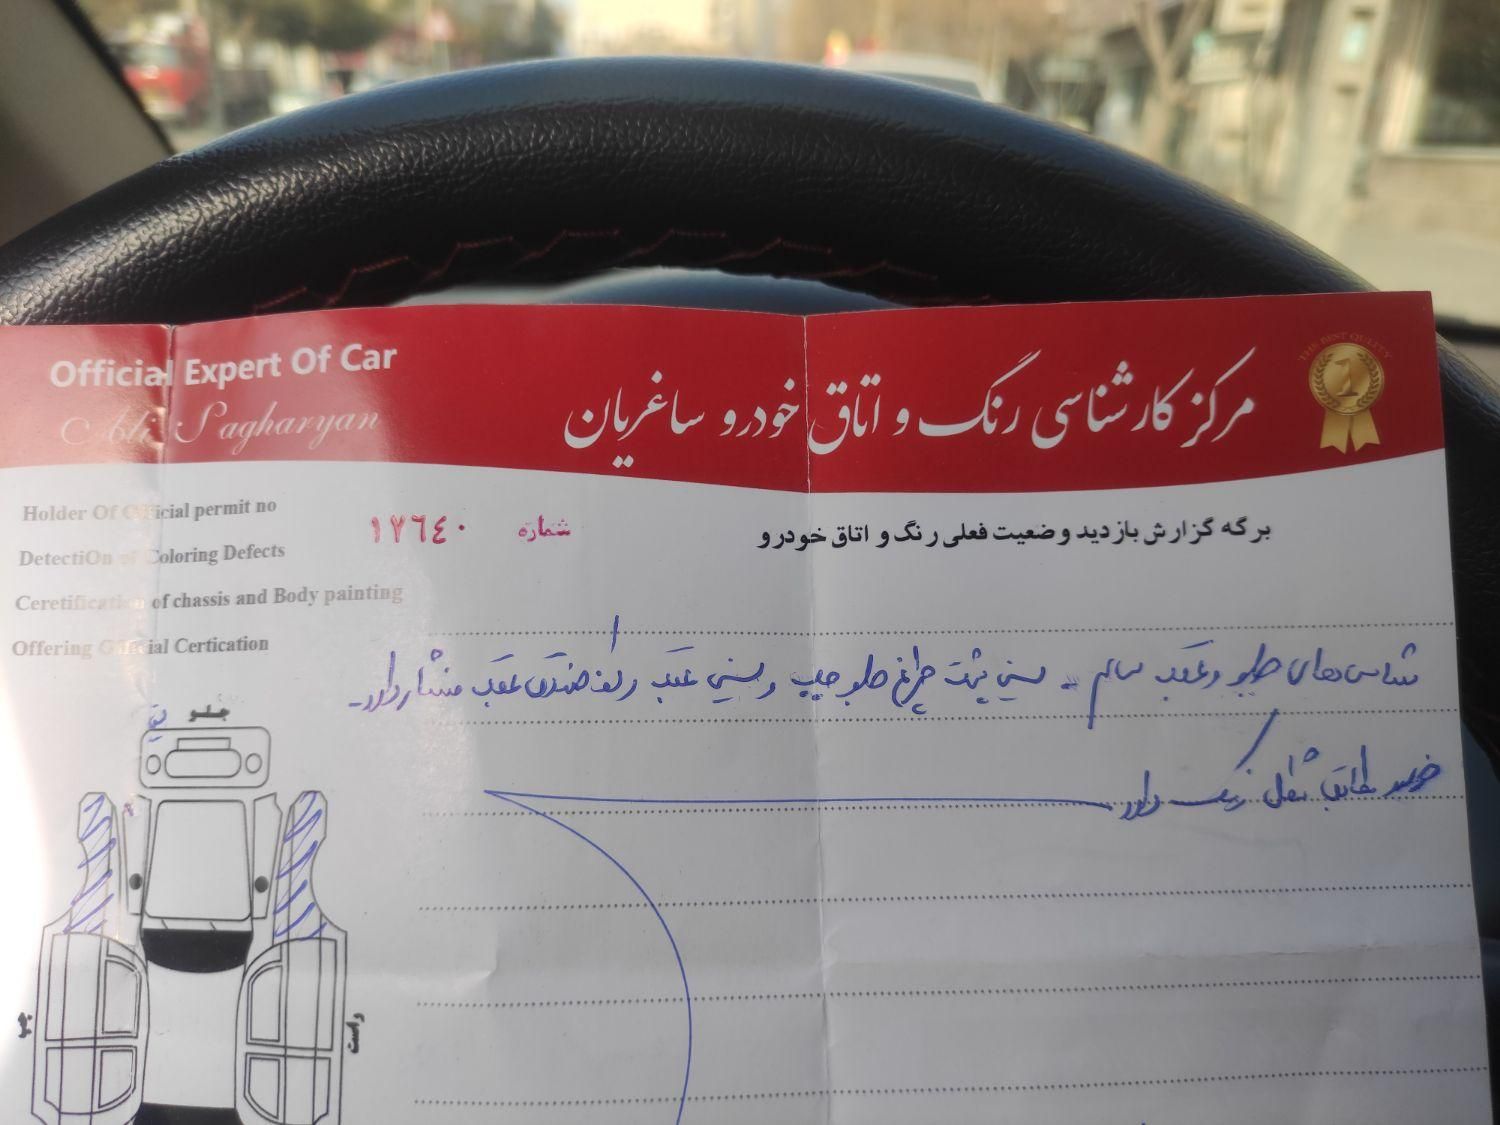 THE BEST QULITY
1
Official Expert Of Car
Ali Sagharyan
مرکز کارشناسی رنگ و اتاق خودرو ساغریان
Holder Of Official permit no
DetectiOn of Coloring Defects
Ceretification of chassis and Body painting
Offering Official Certication
شماره ١٧٦٤٠
برگه گزارش بازدید وضعیت فعلی رنگ و اتاق خودرو
شاسی‌های جلو و عقب سالم - سینی پشت چراغ جلو چپ و سینی عقب و کف صندوق عقب فشار دارد -
خودرو مطابق شکل رنگ دارد
جلو
راست